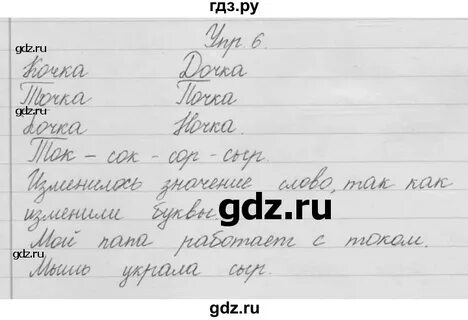 гдз.ру
Упр 6.
Кочка Дочка
Точка Почка
Кочка Ночка.
Ток – сок – сор – сыр.
Изменилось значение слово, так как
изменили буквы.
Мой папа работает с током.
Мышь украла сыр.
gdz.ru
gdz.ru
gdz.ru
gdz.ru
gdz.ru
gdz.ru
gdz.ru